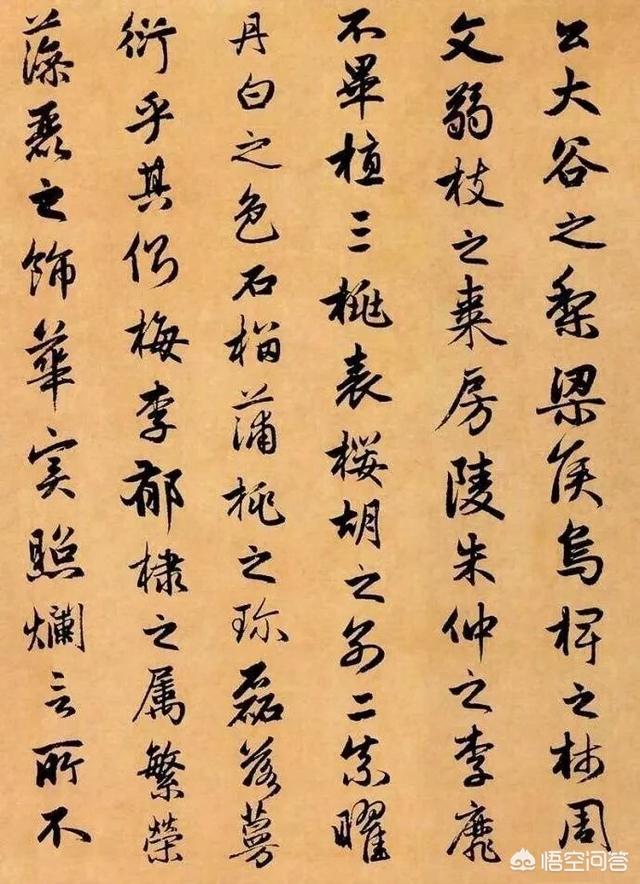 公大谷之梨梁侯烏椑之柿周
文弱枝之棗房陵朱仲之李靡
不畢植三桃表櫻胡之別二柰曜
丹白之色石榴蒲桃之珎磊落蔓
衍乎其側梅李郁棣之属繁榮
藻麗之飾華實照爛言所不
悟空问答